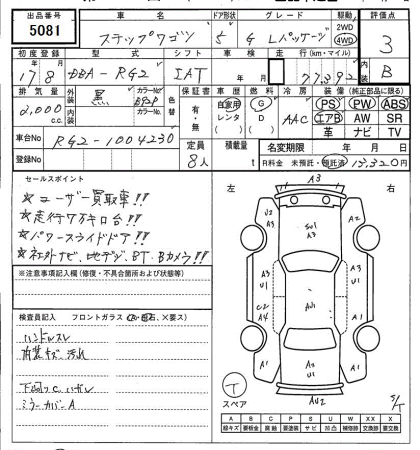 出品番号 車名 ドア形状 グレード 駆動 評価点
5081 ステップワゴン 5 G Lパッケージ 2WD 4WD 3
初度登録 型式 シフト 車検 走行(km・マイル) 内装
17 8 DBA-RG2 IAT 年 月 77,392 B
排気量 外装 色 カラーNo. 色替 保証書 車歴 燃料 冷房 装備(純正部品に限る)
2,000 c.c. 黒 B92P 有・無 自家用 レンタ G D AAC PS PW ABS
内装 カラーNo. エアB AW SR
革 ナビ TV
車台No RG2-1004230 定員 積載量 名変期限 年 月 日
登録No 8人 t R料金 未預託・預託済 13,320円
セールスポイント
★ユーザー買取車!!
★走行7万キロ台!!
★パワースライドドア!!
★社外ナビ、地デジ、BT、Bカメラ!!
※注意事項記入欄(修復・不具合箇所および状態等)
検査員記入 フロントガラス(A・飛石、×要ス)
ハンドルスレ
内装キズ、汚れ
下廻りC、ハガレ
ミラーカバーA
左 A3 右
U2 A3 A3
SU1
A3 U1 A3 U1
C2 A4 AU1 A3
A1 A3 U1 A1
T
スペア AU2 S/T
A B C P S U W X XX
線キズ 要板金 腐食 要塗装 サビ 凹凸 補修跡 要交換 交換済